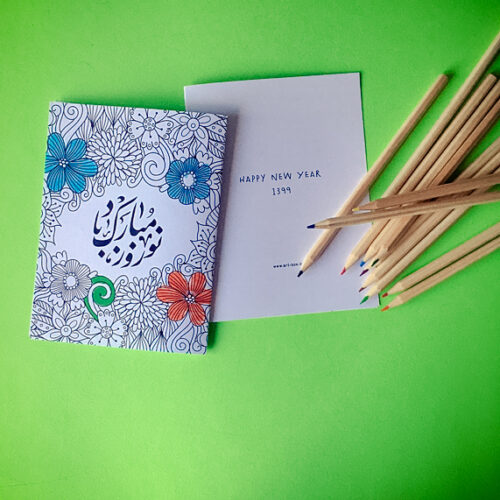 نوروز مبارک باد
HAPPY NEW YEAR
1399